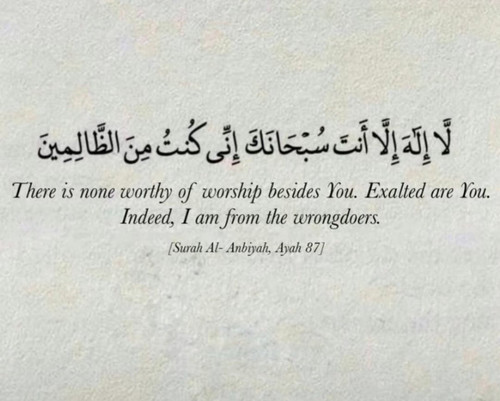 لَّا إِلَٰهَ إِلَّا أَنتَ سُبْحَانَكَ إِنِّي كُنتُ مِنَ الظَّالِمِينَ
There is none worthy of worship besides You. Exalted are You.
Indeed, I am from the wrongdoers.
[Surah Al- Anbiyah, Ayah 87]